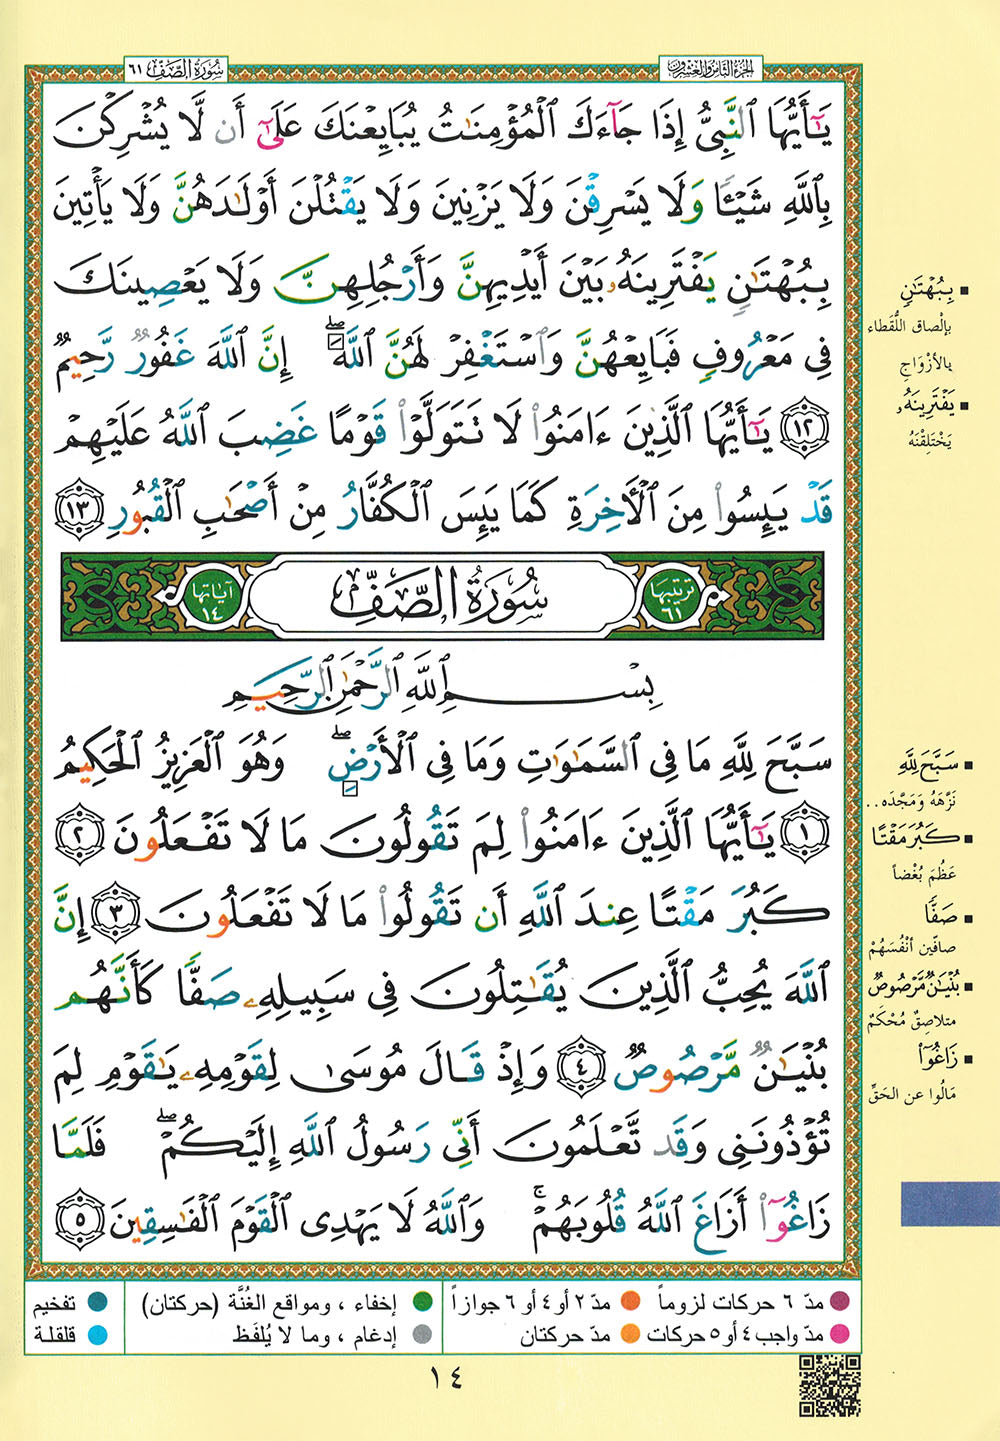 الجزء الثامن والعشرون
سُورَةُ الصَّفِّ ٦١
يَـٰٓأَيُّهَا ٱلنَّبِىُّ إِذَا جَآءَكَ ٱلْمُؤْمِنَـٰتُ يُبَايِعْنَكَ عَلَىٰٓ أَن لَّا يُشْرِكْنَ
بِٱللَّهِ شَيْـًٔا وَلَا يَسْرِقْنَ وَلَا يَزْنِينَ وَلَا يَقْتُلْنَ أَوْلَـٰدَهُنَّ وَلَا يَأْتِينَ
بِبُهْتَـٰنٍ يَفْتَرِينَهُۥ بَيْنَ أَيْدِيهِنَّ وَأَرْجُلِهِنَّ وَلَا يَعْصِينَكَ
فِى مَعْرُوفٍ فَبَايِعْهُنَّ وَٱسْتَغْفِرْ لَهُنَّ ٱللَّهَ ۖ إِنَّ ٱللَّهَ غَفُورٌ رَّحِيمٌ
١٢ يَـٰٓأَيُّهَا ٱلَّذِينَ ءَامَنُوا۟ لَا تَتَوَلَّوْا۟ قَوْمًا غَضِبَ ٱللَّهُ عَلَيْهِمْ
قَدْ يَئِسُوا۟ مِنَ ٱلْـَٔاخِرَةِ كَمَا يَئِسَ ٱلْكُفَّارُ مِنْ أَصْحَـٰبِ ٱلْقُبُورِ ١٣
ترتيبها ٦١
سُورَةُ الصَّفِّ
آياتها ١٤
بِسْمِ ٱللَّهِ ٱلرَّحْمَـٰنِ ٱلرَّحِيمِ
سَبَّحَ لِلَّهِ مَا فِى ٱلسَّمَـٰوَٰتِ وَمَا فِى ٱلْأَرْضِ ۖ وَهُوَ ٱلْعَزِيزُ ٱلْحَكِيمُ
١ يَـٰٓأَيُّهَا ٱلَّذِينَ ءَامَنُوا۟ لِمَ تَقُولُونَ مَا لَا تَفْعَلُونَ ٢
كَبُرَ مَقْتًا عِندَ ٱللَّهِ أَن تَقُولُوا۟ مَا لَا تَفْعَلُونَ ٣ إِنَّ
ٱللَّهَ يُحِبُّ ٱلَّذِينَ يُقَـٰتِلُونَ فِى سَبِيلِهِۦ صَفًّا كَأَنَّهُم
بُنْيَـٰنٌ مَّرْصُوصٌ ٤ وَإِذْ قَالَ مُوسَىٰ لِقَوْمِهِۦ يَـٰقَوْمِ لِمَ
تُؤْذُونَنِى وَقَد تَّعْلَمُونَ أَنِّى رَسُولُ ٱللَّهِ إِلَيْكُمْ ۖ فَلَمَّا
زَاغُوٓا۟ أَزَاغَ ٱللَّهُ قُلُوبَهُمْ ۚ وَٱللَّهُ لَا يَهْدِى ٱلْقَوْمَ ٱلْفَـٰسِقِينَ ٥
بِبُهْتَـٰنٍ
بإلْصاق اللُّقَطاء
بالأزْوَاجِ
يَفْتَرِينَهُۥ
يَخْتَلِقْنَهُ
سَبَّحَ لِلَّهِ
نَزَّهَهُ وَمَجَّدَه..
كَبُرَ مَقْتًا
عَظُمَ بُغْضاً
صَفًّا
صافّين أنْفُسَهُمْ
بُنْيَـٰنٌ مَّرْصُوصٌ
متلاصِقٌ مُحْكَمٌ
زَاغُوٓا۟
مَالُوا عن الحَقِّ
مدّ ٦ حركات لزوماً
مدّ ٢ أو ٤ أو ٦ جوازاً
إخفاء ، ومواقع الغُنَّة (حركتان)
تفخيم
مدّ واجب ٤ أو ٥ حركات
مدّ حركتان
إدغام ، وما لا يُلفَظ
قلقلة
١٤